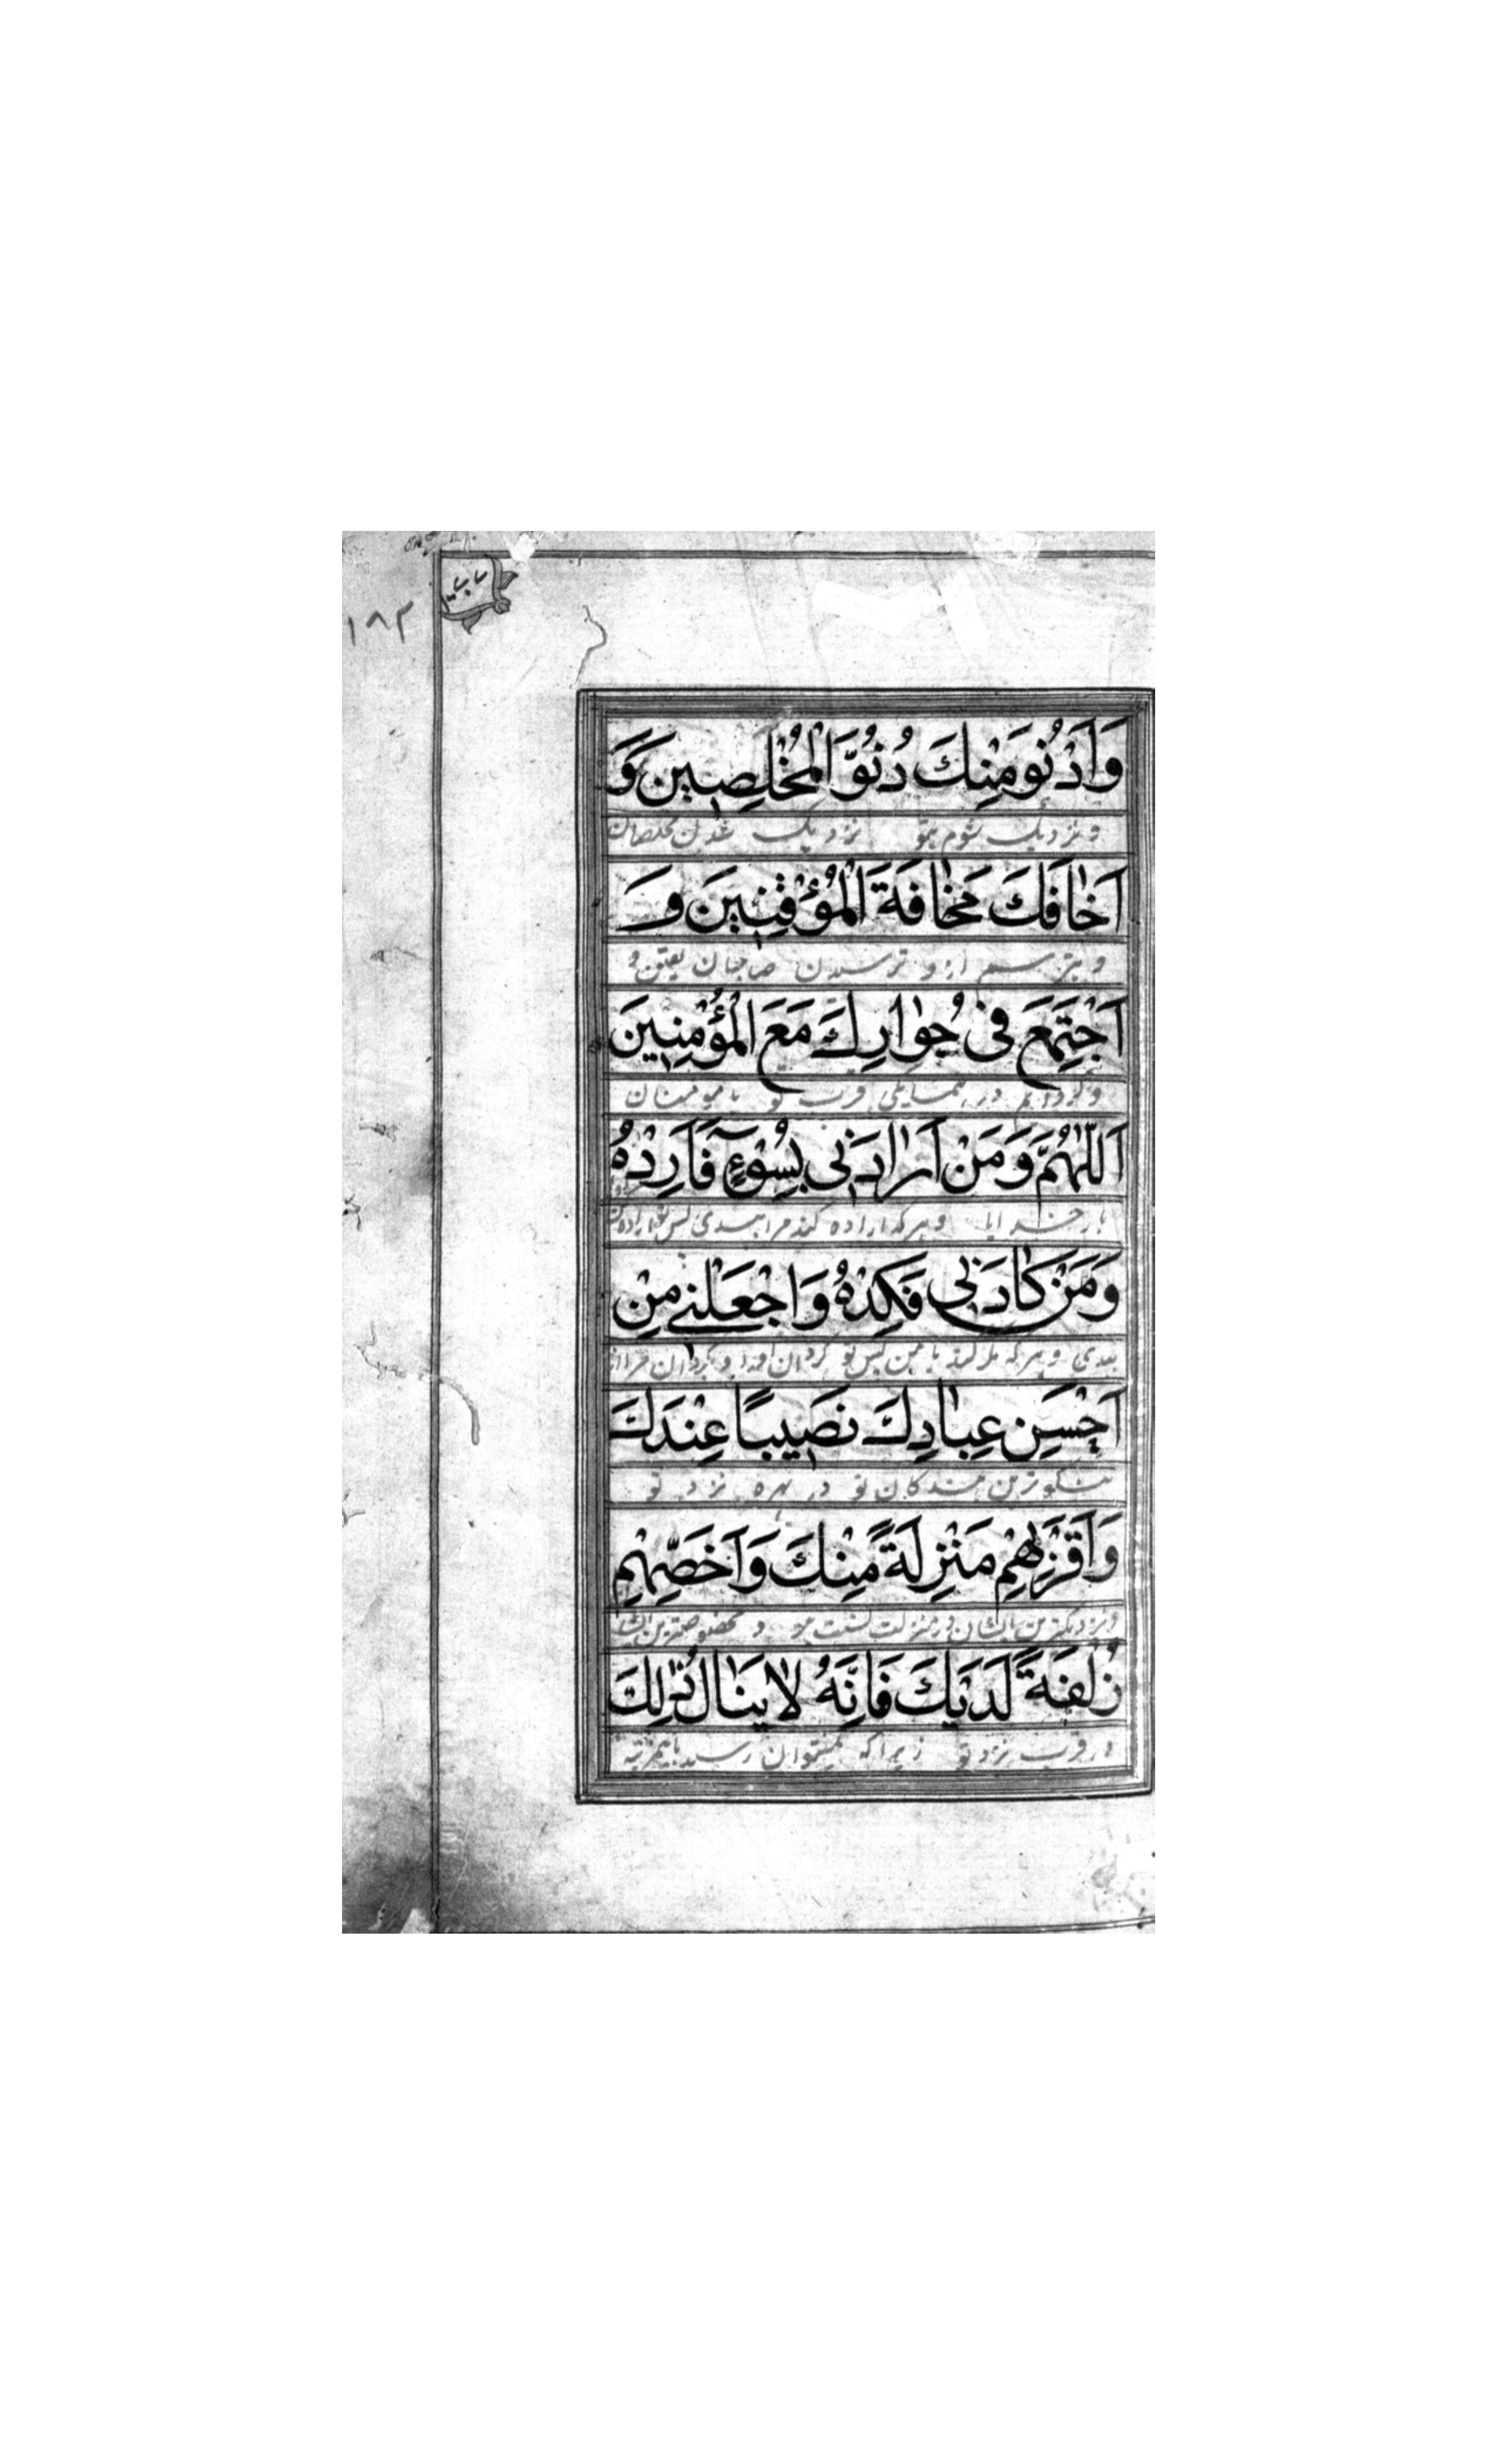 ١٨٢
وَاَدْنُوَ مِنْكَ دُنُوَّ الْمُخْلِصِينَ وَ
و نزدیک شوم بتو نزدیک شدن مخلصان
اَخٰافَكَ مَخٰافَةَ الْمُؤْقِنِينَ وَ
و بترسم از تو ترسیدن صاحبان یقین و
اَجْتَمِعَ فى جُوٰارِكَ مَعَ الْمُؤْمِنِينَ
در همسایکی قرب تو با مومنان
اَللّٰهُمَّ وَمَنْ اَرٰادَنى بِسُوۤءٍ فَاَرِدْهُ
بار خدایا و هر که اراده کند مرا ببدی پس تو اراده کن
وَمَنْ كٰادَنى فَكِدْهُ وَاجْعَلْنى مِنْ
ببدی و هر که مکر کند با من پس تو و بگردان مرا از
اَحْسَنِ عِبٰادِكَ نَصيبًا عِنْدَكَ
نیکوترین بندکان تو در بهره نزد تو
وَاَقْرَبِهِمْ مَنْزِلَةً مِنْكَ وَاَخَصِّهِمْ
و نزدیکترین ایشان در منزلت و مخصوصترین ایشان
زُلْفَةً لَدَيْكَ فَاِنَّهُ لٰا يَنٰالُ ذٰلِكَ
در قرب نزد تو زیرا که نمیتوان رسید باین مرتبه